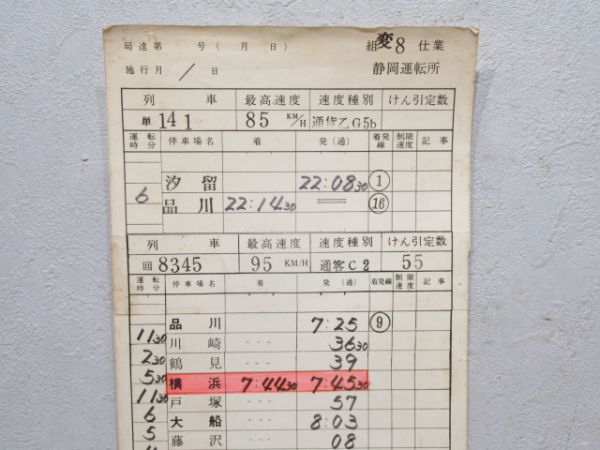 局達第 号( 月 日) 組変8仕業
施行月 / 日 静岡運転所
列車 最高速度 速度種別 けん引定数
単141 85KM/H 通貨乙G5b
運転時分 停車場名 着 発(通) 着発線 制限速度 記事
汐留 22:08 30 ①
6 品川 22:14 30 ═ ⑯
列車 最高速度 速度種別 けん引定数
回8345 95KM/H 通客C2 55
運転時分 停車場名 着 発(通) 着発線 制限速度 記事
品川 7:25 ⑨
11 30 川崎 ・・・ 36 30
2 30 鶴見 ・・・ 39
5 30 横浜 7:44 30 7:45 30
11 30 戸塚 ・・・ 57
6 大船 ・・・ 8:03
5 藤沢 ・・・ 08